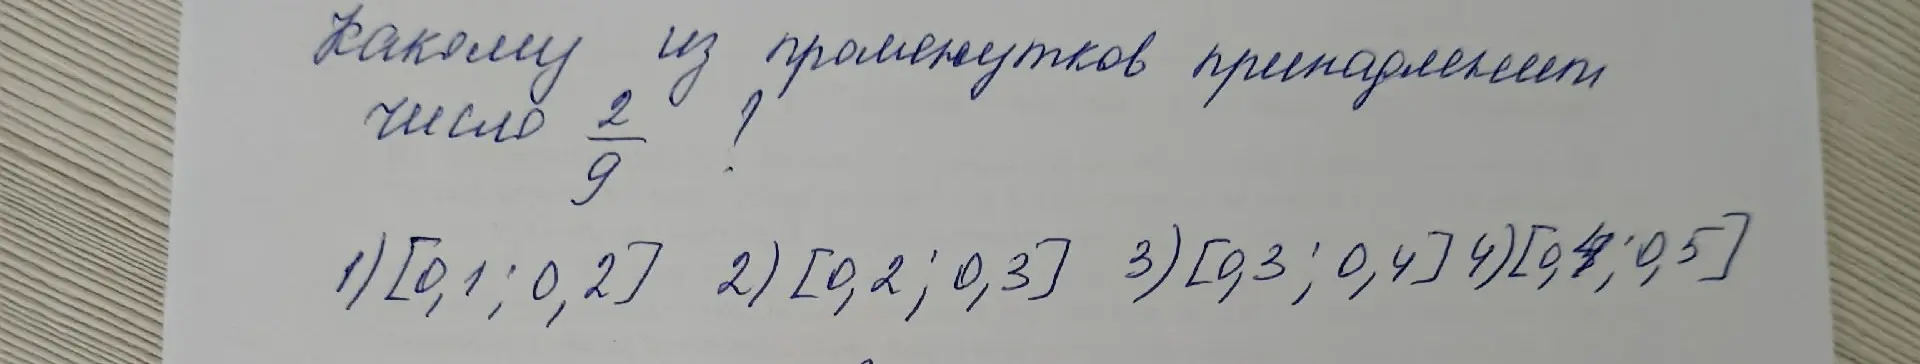 Какому из промежутков принадлежит
число 2/9 ?
1) [0,1; 0,2] 2) [0,2; 0,3] 3) [0,3; 0,4] 4) [0,4; 0,5]